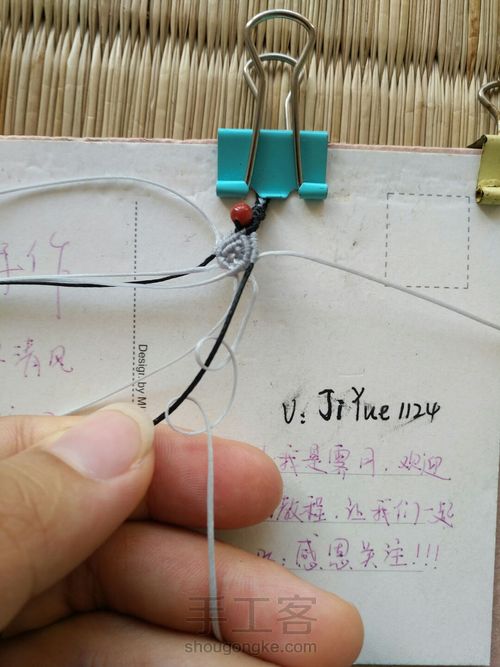 手作
清风
Design by M
V: JiYue1124
我是霁月.欢迎
教程.让我们一起
感恩关注!!!
手工客
shougongke.com